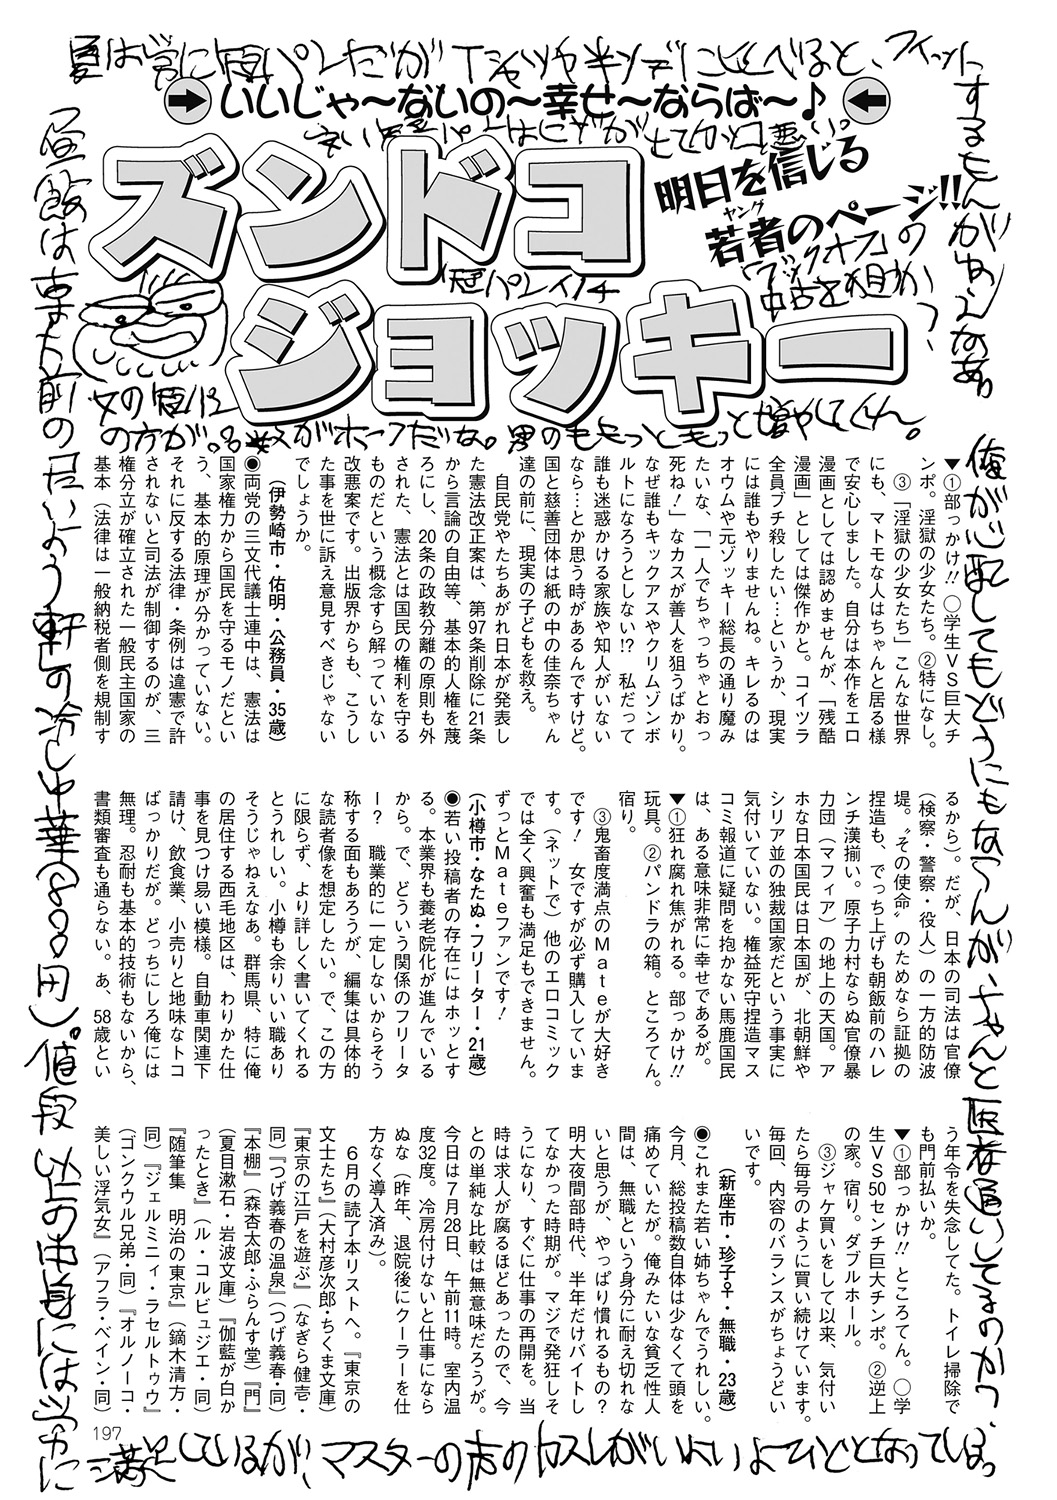 夏は常に短パンだがTシャツや半ソデにくらべると、フィット
するもんがねえなあ。
いいじゃ〜ないの〜幸せ〜ならば〜♪
ズンドコ
ジョッキー
明日を信じる
若者のページ!!
ヤング
ブックオフの
中古を狙わ
女の短パン
の方が。名数がホーフだな。男のももっともっと増やしてくれ。
俺が心配してもどうにもならんが、ちゃんと医者通いしてるのかっ
昼飯はあま
前の
軒の冷し中華(800円)。値段以上の中身には常に
満足しているが、マスターの声のカスレがいよいよひどくなっている。
▼①部っかけ!! ◯学生VS巨大チ
ンポ。淫獄の少女たち。②特になし。
③「淫獄の少女たち」こんな世界
にも、マトモな人はちゃんと居る様
で安心しました。自分は本作をエロ
漫画としては認めませんが、「残酷
漫画」としては傑作かと。コイツラ
全員ブチ殺したい…というか、現実
には誰もやりませんね。キレるのは
オウムや元ゾッキー総長の通り魔み
たいな、「一人でちゃっちゃとおっ
死ね!」なカスが善人を狙うばかり。
なぜ誰もキックアスやクリムゾンボ
ルトになろうとしない!? 私だって
誰も迷惑かける家族や知人がいない
なら…とか思う時があるんですけど。
国と慈善団体は紙の中の佳奈ちゃん
達の前に、現実の子どもを救え。
自民党やたちあがれ日本が発表し
た憲法改正案は、第97条削除に21条
から言論の自由等、基本的人権を蔑
ろにし、20条の政教分離の原則も外
された、憲法とは国民の権利を守る
ものだという概念すら解っていない
改悪案です。出版界からも、こうし
た事を世に訴え意見すべきじゃない
でしょうか。
(伊勢崎市・佑明・公務員・35歳)
◉両党の三文代議士連中は、憲法は
国家権力から国民を守るモノだとい
う、基本的原理が分かっていない。
それに反する法律・条例は違憲で許
されないと司法が制御するのが、三
権分立が確立された一般民主国家の
基本(法律は一般納税者側を規制す
るから)。だが、日本の司法は官僚
(検察・警察・役人)の一方的防波
堤。〝その使命〟のためなら証拠の
捏造も、でっち上げも朝飯前のハレ
ンチ漢揃い。原子力村ならぬ官僚暴
力団(マフィア)の地上の天国。ア
ホな日本国民は日本国が、北朝鮮や
シリア並の独裁国家だという事実に
気付いていない。権益死守捏造マス
コミ報道に疑問を抱かない馬鹿国民
は、ある意味非常に幸せであるが。
▼①狂れ腐れ焦がれる。部っかけ!!
玩具。②パンドラの箱。ところてん。
宿り。
③鬼畜度満点のMateが大好き
です! 女ですが必ず購入していま
す。(ネットで)他のエロコミック
では全く興奮も満足もできません。
ずっとMateファンです!
(小樽市・なたぬ・フリーター・21歳)
◉若い投稿者の存在にはホッとす
る。本業界も養老院化が進んでいる
から。で、どういう関係のフリータ
ー? 職業的に一定しないからそう
称する面もあろうが、編集は具体的
な読者像を想定したい。で、この方
に限らず、より詳しく書いてくれる
とうれしい。小樽も余りいい職あり
そうじゃねえなあ。群馬県、特に俺
の居住する西毛地区は、わりかた仕
事を見つけ易い模様。自動車関連下
請け、飲食業、小売りと地味なトコ
ばっかりだが。どっちにしろ俺には
無理。忍耐も基本的技術もないから、
書類審査も通らない。あ、58歳とい
う年令を失念してた。トイレ掃除で
も門前払いか。
▼①部っかけ!! ところてん。◯学
生VS50センチ巨大チンポ。②逆上
の家。宿り。ダブルホール。
③ジャケ買いをして以来、気付い
たら毎号のように買い続けています。
毎回、内容のバランスがちょうどい
いです。
(新座市・珍子♀・無職・23歳)
◉これまた若い姉ちゃんでうれしい。
今月、総投稿数自体は少なくて頭を
痛めていたが。俺みたいな貧乏性人
間は、無職という身分に耐え切れな
いと思うが、やっぱり慣れるもの?
明大夜間部時代、半年だけバイトし
てなかった時期が。マジで発狂しそ
うになり、すぐに仕事の再開を。当
時は求人が腐るほどあったので、今
との単純な比較は無意味だろうが。
今日は7月28日、午前11時。室内温
度32度。冷房付けないと仕事になら
ぬな(昨年、退院後にクーラーを仕
方なく導入済み)。
6月の読了本リストへ。『東京の
文士たち』(大村彦次郎・ちくま文庫)
『東京の江戸を遊ぶ』(なぎら健壱・
同)『つげ義春の温泉』(つげ義春・同)
『本棚』(森杏太郎・ふらんす堂)『門』
(夏目漱石・岩波文庫)『伽藍が白か
ったとき』(ル・コルビュジエ・同)
『随筆集 明治の東京』(鏑木清方・
同)『ジェルミニィ・ラセルトゥウ』
(ゴンクウル兄弟・同)『オルノーコ・
美しい浮気女』(アフラ・ベイン・同)
197